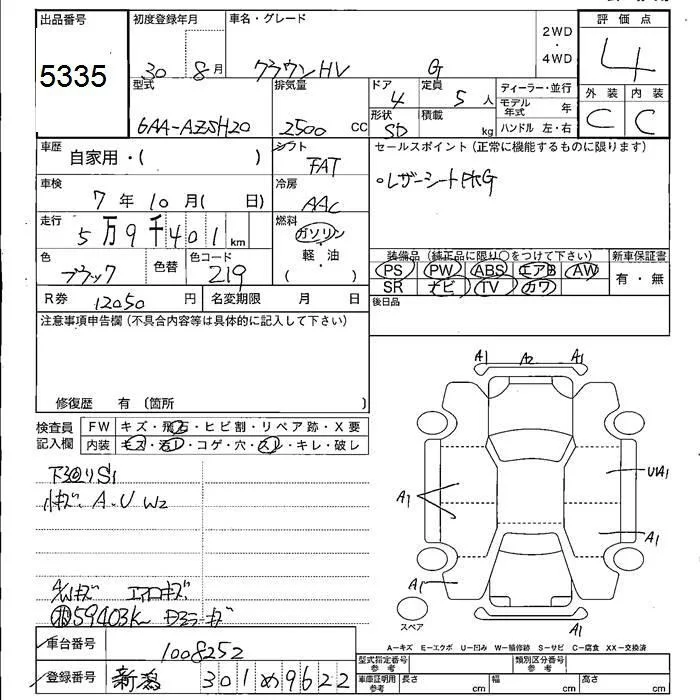 出品番号 初度登録年月 車名・グレード 2WD・4WD 評価点
5335 30 8月 クラウンHV G 4
型式 排気量 ドア 4 定員 5人 ディーラー・並行 外装 内装
モデル年式 年
6AA-AZSH20 2500 CC 形状 SD 積載 kg ハンドル 左・右 C C
車歴 自家用・( ) シフト FAT セールスポイント(正常に機能するものに限ります)
車検 7年10月( 日) 冷房 AAC ・レザーシート
走行 5万9千401km 燃料 ガソリン・軽・油 ( )
色 ブラック 色替 色コード 219
装備品(純正品に限り○をつけて下さい) 新車保証書
PS PW ABS エアB AW 有・無
SR ナビ TV カワ
R券 12050円 名変期限 月 日 後日品
注意事項申告欄(不具合内容等は具体的に記入して下さい)
修復歴 有 (箇所 )
検査員記入欄 FW キズ・飛石・ヒビ割・リペア跡・X要
内装 キズ・汚レ・コゲ・穴・スレ・キレ・破レ
下回りS1
小キズ、A、U W2
A/Wキズ エアロキズ
59403K ドアミラーキズ
A1 A2 A1
A1 UA1
A1
A1
A1
スペア
A-キズ E-エクボ U-凹み W-補修跡 S-サビ C-腐食 XX-交換済
車台番号 1008252
型式指定番号 参考 類別区分番号 参考
登録番号 新潟 301 め 9622
車庫証明用 参考 長さ cm 幅 cm 高さ cm